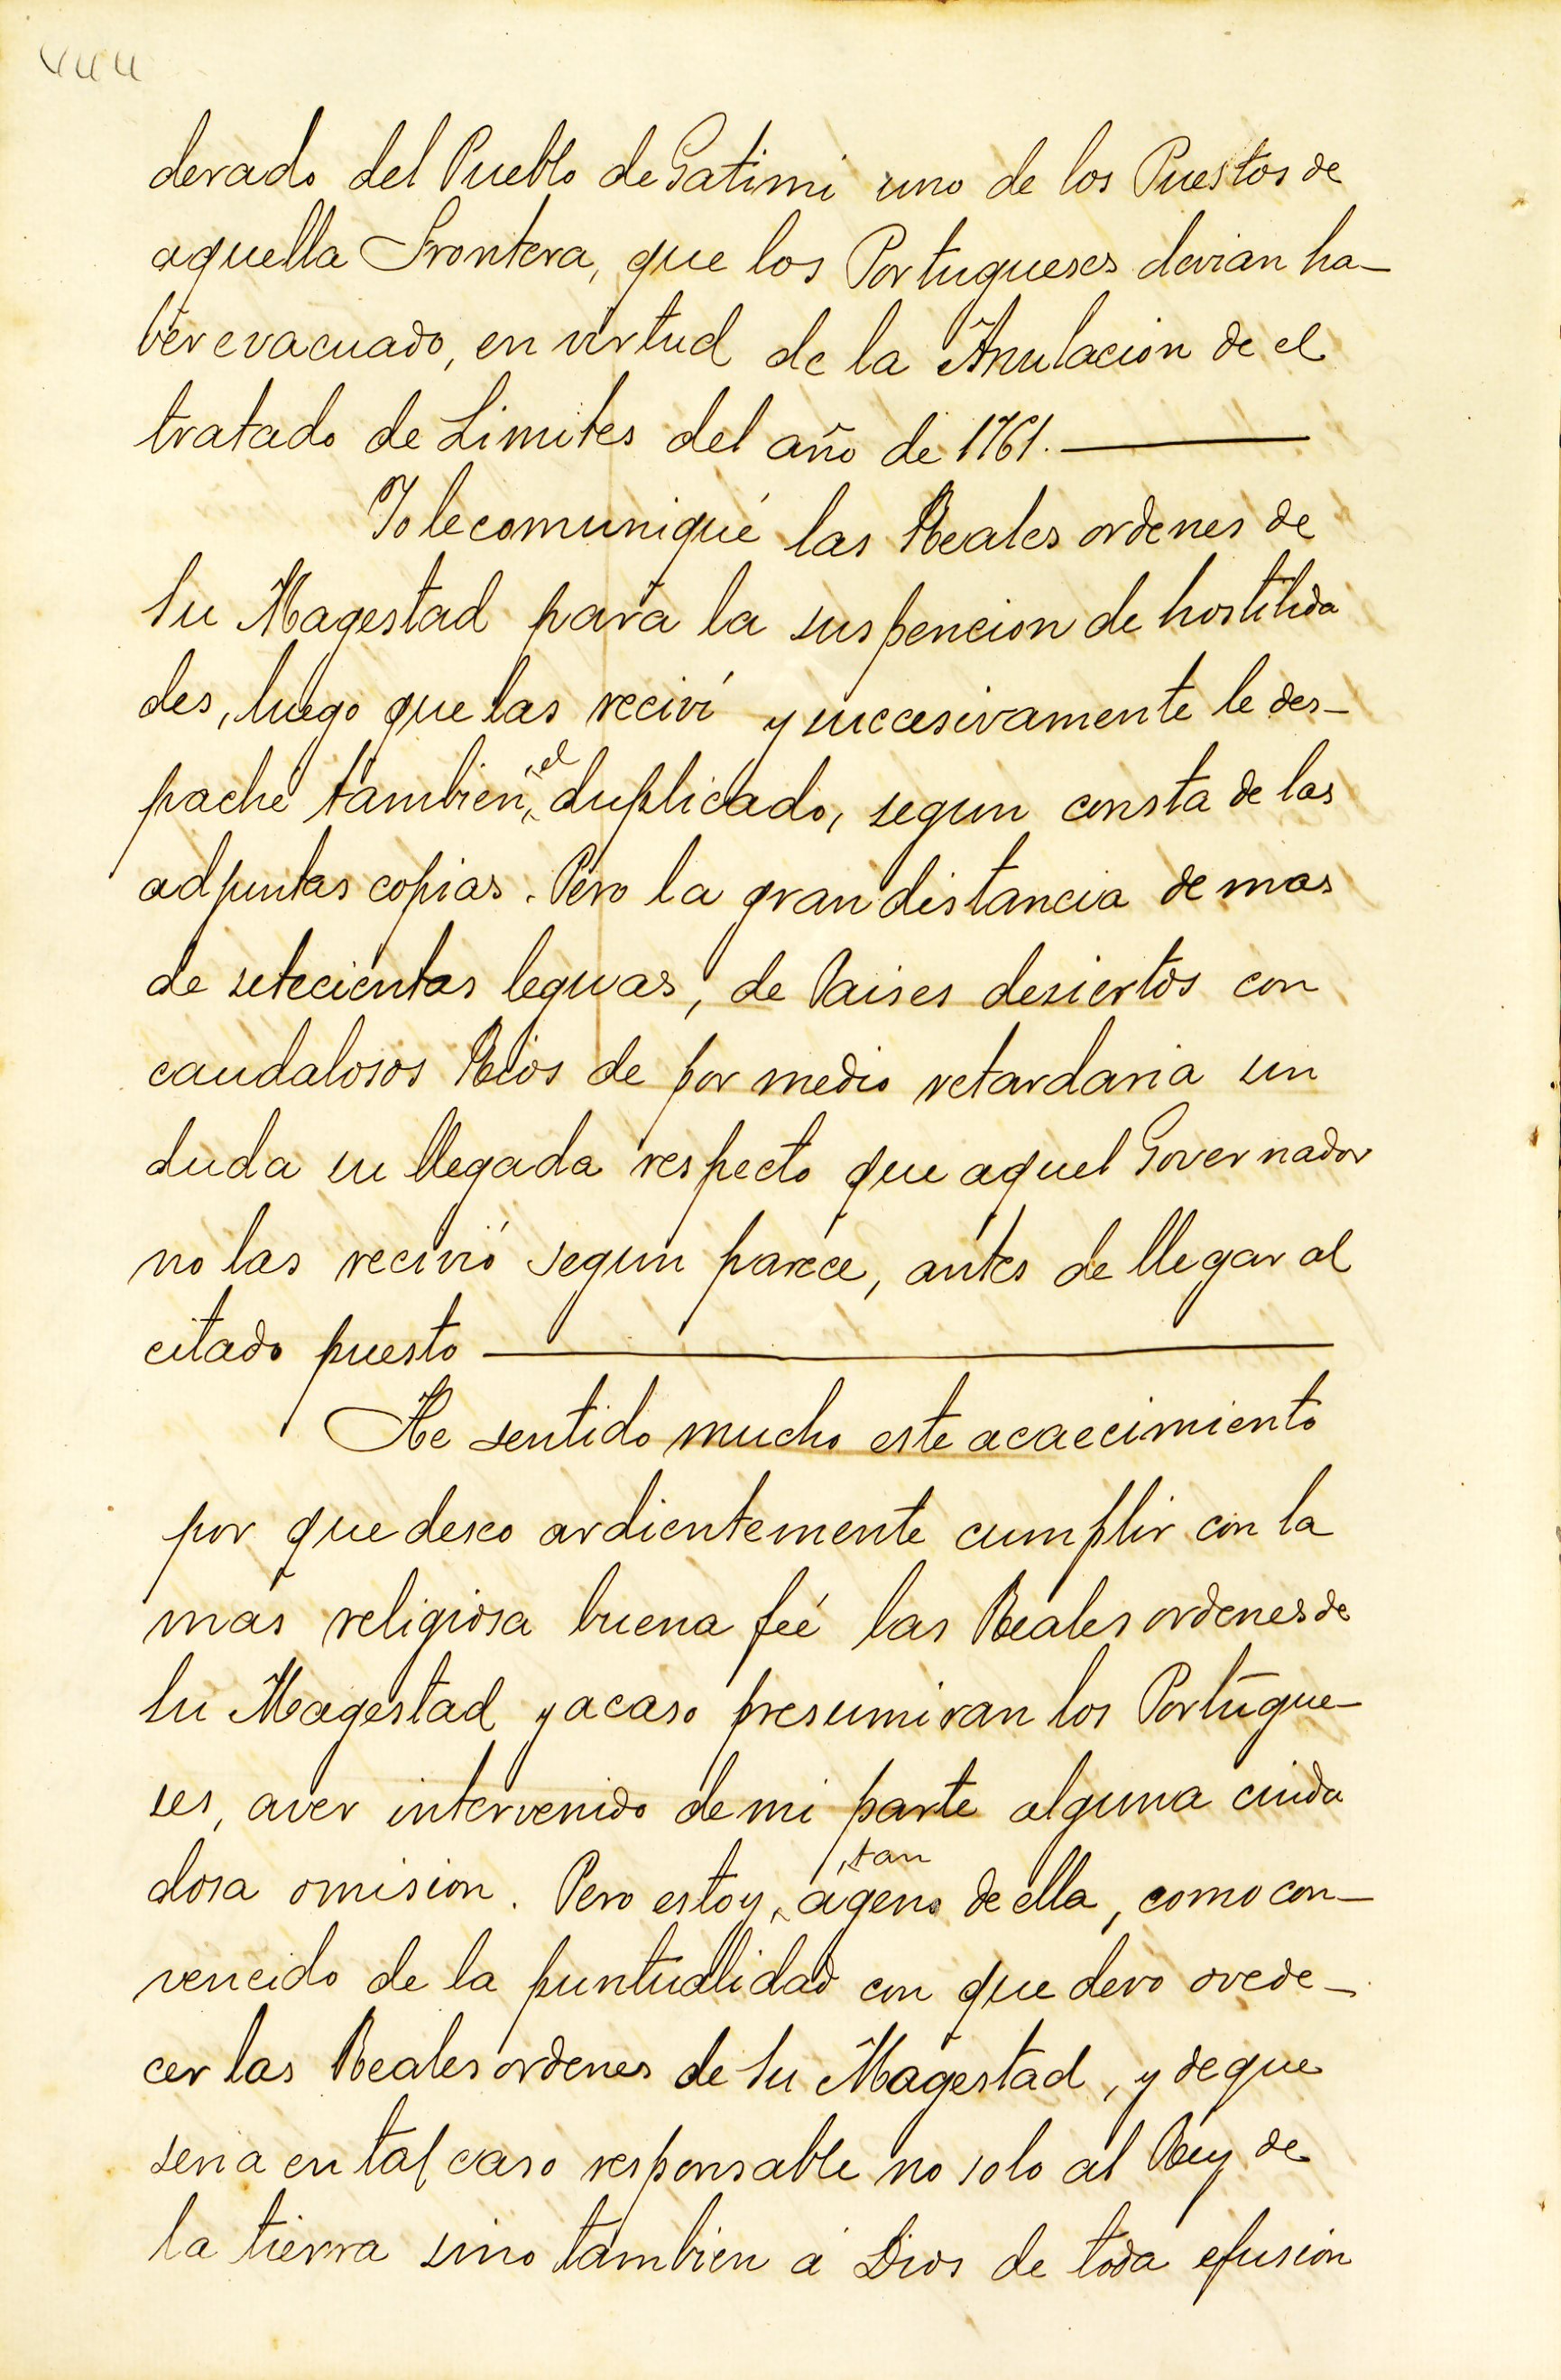 derado del Pueblo de Gatimi uno de los Puestos de
aquella Frontera, que los Portugueses devian ha-
ver evacuado, en virtud de la Anulacion de el
tratado de Limites del año de 1761.
Yo le comuniqué las Reales ordenes de
Su Magestad para la suspencion de hostilida
des, luego que las reciví y succesivamente le des-
paché tambien, el duplicado, segun consta de las
adjuntas copias. Pero la gran distancia de mas
de setecientas leguas, de Paises desiertos con
caudalosos Rios de por medio retardaria sin
duda su llegada respecto que aquel Governador
no las recivió segun parece, antes de llegar al
citado puesto
He sentido mucho este acaecimiento
por que deseo ardientemente cumplir con la
mas religiosa buena feé las Reales ordenes de
Su Magestad y acaso presumiran los Portugue-
ses, aver intervenido de mi parte alguna cuida
dosa omision. Pero estoy, tan ageno de ella, como con-
vencido de la puntualidad con que devo ovede-
cer las Reales ordenes de Su Magestad, y de que
seria en tal caso responsable no solo al Rey de
la tierra sino tambien á Dios de toda efusion